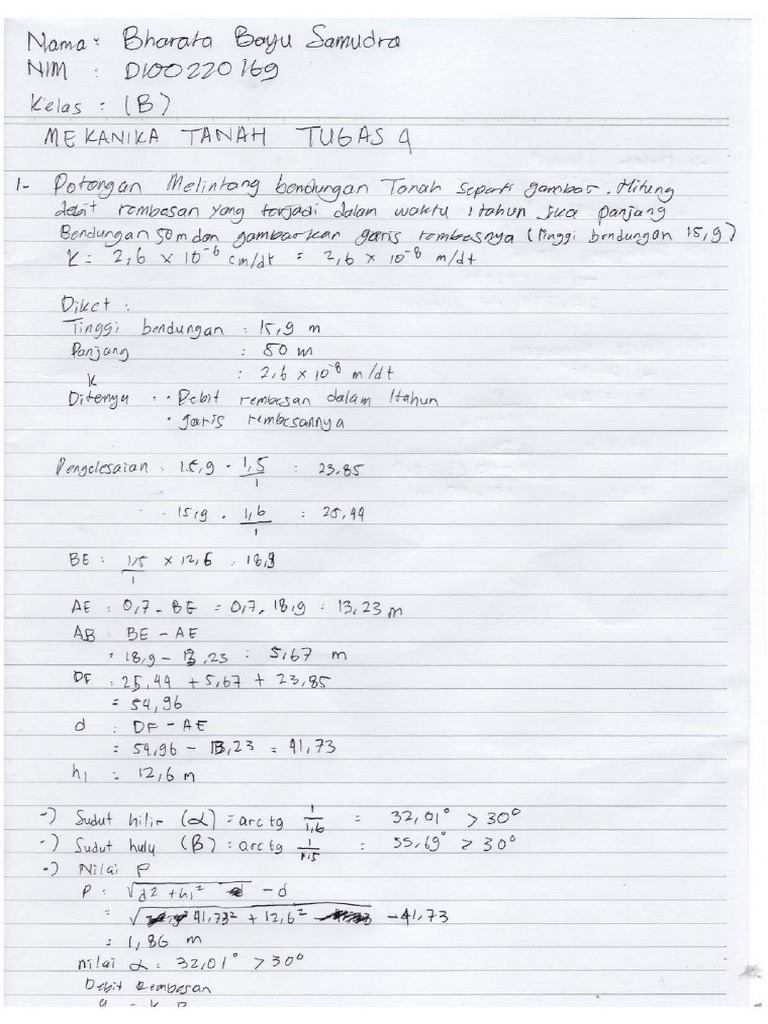 Nama : Bharata Bayu Samudra
NIM : D100220169
Kelas : (B)
MEKANIKA TANAH TUGAS 4
1- Potongan Melintang bendungan Tanah seperti gambar. Hitung
debit rembesan yang terjadi dalam waktu 1 tahun jika panjang
Bendungan 50 m dan gambarkan garis rembesnya (tinggi bendungan 15,9)
K = 2,6 × 10⁻⁶ cm/dt = 2,6 × 10⁻⁸ m/dt
Diket :
Tinggi bendungan : 15,9 m
Panjang : 50 m
k : 2,6 × 10⁻⁸ m/dt
Ditanya : • Debit rembesan dalam 1 tahun
• garis rembesannya
Pengelesaian : 15,9 . 1,5/1 = 23,85
15,9 . 1,6/1 = 25,44
BE : 1,5/1 × 12,6 = 18,9
AE : 0,7 . BE = 0,7 . 18,9 = 13,23 m
AB : BE - AE
= 18,9 - 13,23 = 5,67 m
DF : 25,44 + 5,67 + 23,85
= 54,96
d : DF - AE
= 54,96 - 13,23 = 41,73
h₁ = 12,6 m
-) Sudut hilir (α) = arc tg 1/1,6 = 32,01° > 30°
-) Sudut hulu (B) = arc tg 1/1,5 = 55,69° > 30°
-) Nilai P
P = √d² + h₁² - d
= √41,73² + 12,6² - 41,73
= 1,86 m
nilai α = 32,01° > 30°
Debit Rembesan